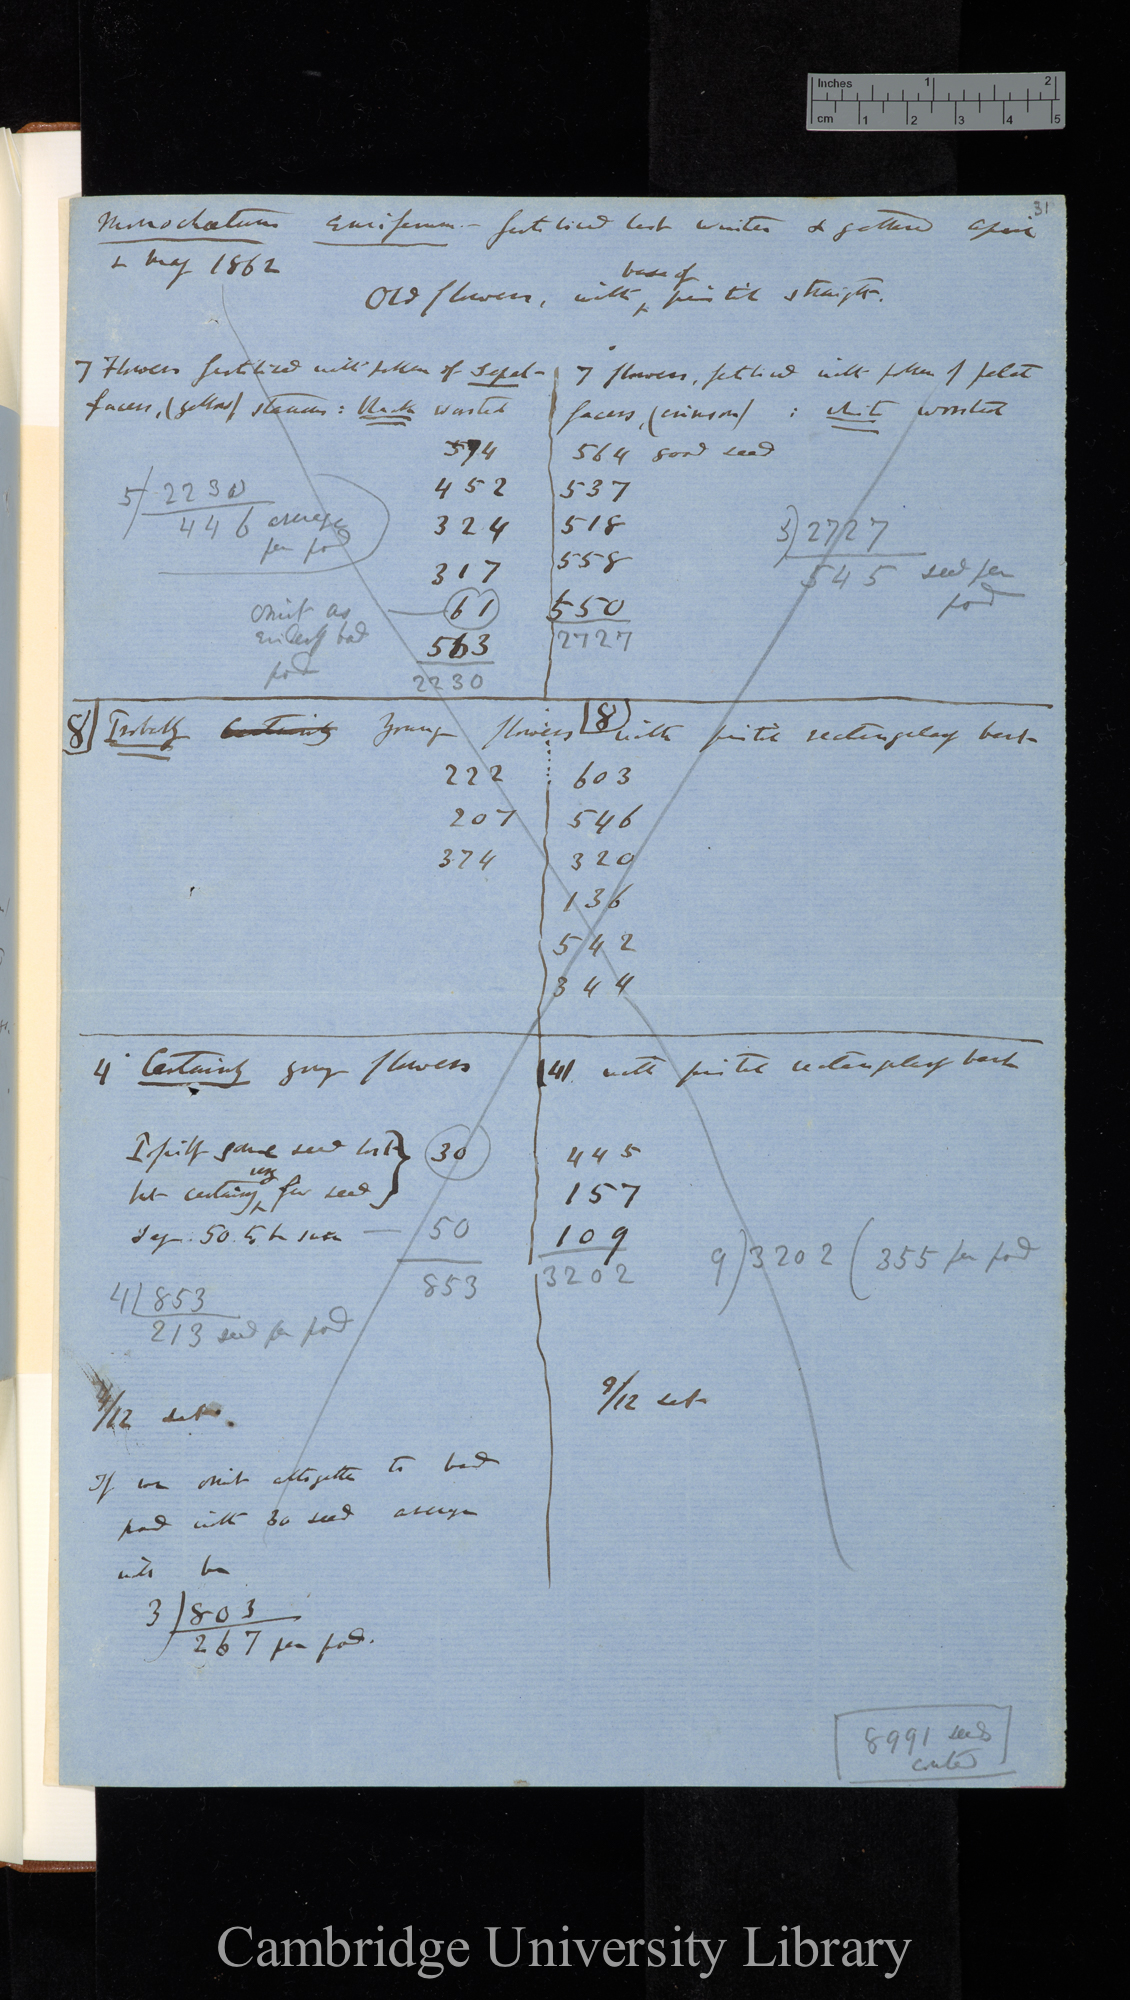 Inches 1 2
cm 1 2 3 4 5
31
Monochætum ensiferum — fertilised last winter & gathered April
& May 1862
base of
Old flowers, with ^ pistil straight.
7 Flowers fertilised with pollen of Sepal-
facers, (yellow) stamens: Black worsted
574
452
324
317
61
563
2230
5) 2230
446 average
per pod
omit as
evidently bad
pod
7 flowers, fertilised with pollen of petal
facers, (crimson) : white worsted
564 good seed
537
518
558
550
2727
5) 2727
545 seed per
pod
8 Probably Certainly young flowers (8) with pistil rectangularly bent
222
207
374
603
546
320
136
542
344
4 Certainly young flowers (4) with pistil rectangularly bent
I spilt some seed lost
very
but certainly ^ few seed
30
say 50 to be sure — 50
853
4) 853
213 seed per pod
445
157
109
3202
9) 3202 (355 per pod
4/12 set.
9/12 set
If we omit altogether the bad
pod with 30 seed average
will be
3) 803
267 per pod.
8991 seeds
counted
Cambridge University Library